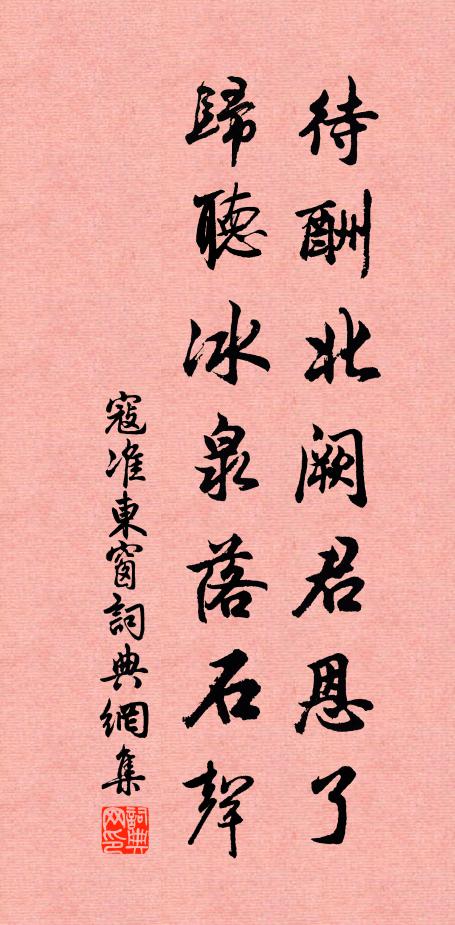 待酬北阙君恩了
歸聽冰泉落石聲
寇准東窗詞典網集
詞典网印